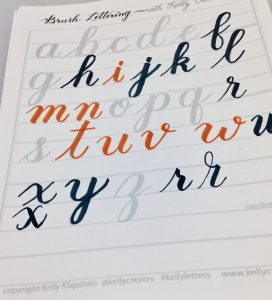 Brush Lettering with Kelly
a b c d e f
g h i j k l
m n o p q r
s t u v w
x y z r r
x
copyright Kelly Klapstein @kellycreates #kellyletters www.kelly